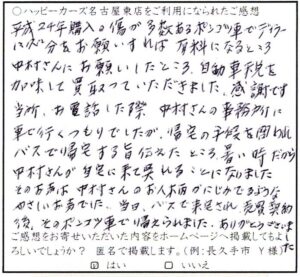 ○ハッピーカーズ名古屋東店をご利用になられたご感想
平成24年購入の傷が多数あるポンコツ車でディーラー
に処分をお願いすれば有料になるところ
中村さんにお願いしたところ、自動車税を
加味して買取っていただきました。感謝です
当所、お電話した際 中村さんの事務所に
車で行くつもりでしたが、帰宅の手段を問われ
バスで帰宅する旨伝えたところ、暑い時だから
中村さんが自宅に来て下さることになりました
そのお声は中村さんのお人柄がにじみでるような
やさしいお声でした。当日、バスで来宅され、売買契約
後、そのポンコツ車で帰えられました。ありがとうございました
ご感想をお寄せいただいた内容をホームページへ掲載してもよ
ろしいでしょうか？ 匿名で掲載します。(例:長久手市 Y 様)
☑ はい □ いいえ